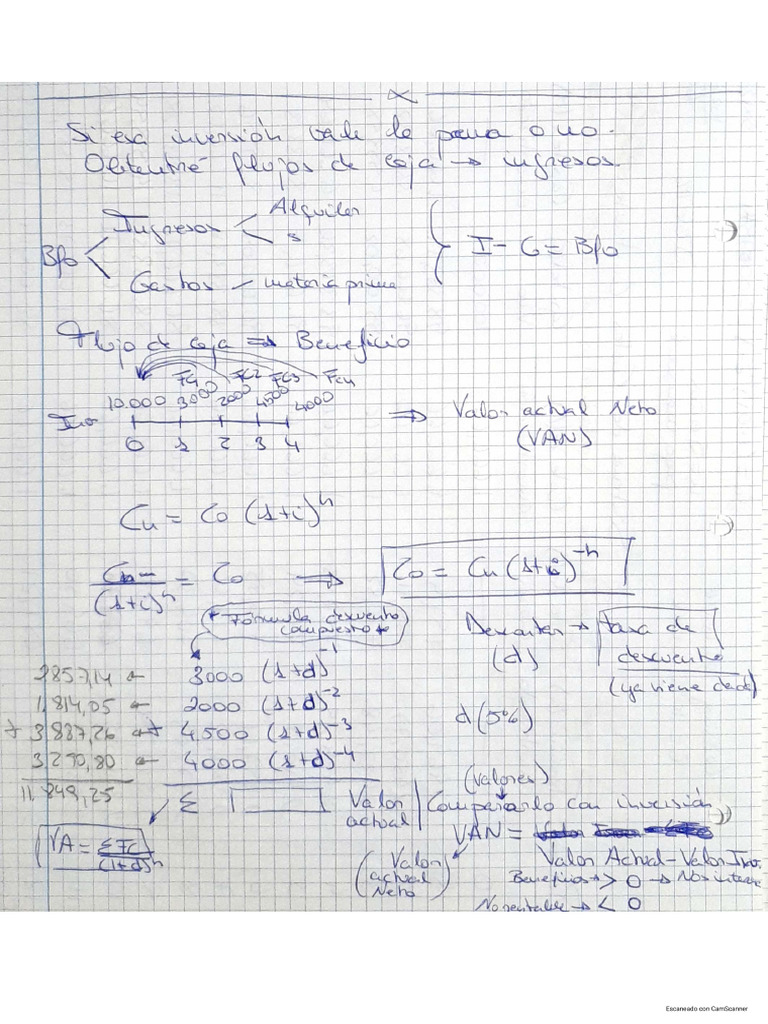 Si esa inversión vale la pena o no.
Obtendré flujos de caja → ingresos.
Bfo
Ingresos
Alquiler
s
Gastos - materia prima
I - G = Bfo
Flujo de caja ⇒ Beneficio
FC1 FC2 FC3 FC4
10.000 3000 2000 4500 4000
0 1 2 3 4
⇒ Valor actual Neto
(VAN)
Cn = Co (1+i)^n
Cn / (1+i)^n = Co ⇒ Co = Cn (1+i)^-n
* Fórmula descuento
compuesto *
Descontar → tasa de
descuento
(d)
(ya viene dada)
2857,14 ← 3000 (1+d)^-1
1.814,05 ← 2000 (1+d)^-2
+ 3.887,26 ← + 4.500 (1+d)^-3
3.290,80 ← 4000 (1+d)^-4
11.849,25
d (5%)
(valores)
Σ Valor
actual
Compararlo con inversión
VA = Σ FC / (1+d)^n
VAN =
Valor Actual - Valor Inv.
(Valor
actual
Neto)
Beneficios → > 0 → Nos interesa
No rentable → < 0
Escaneado con CamScanner